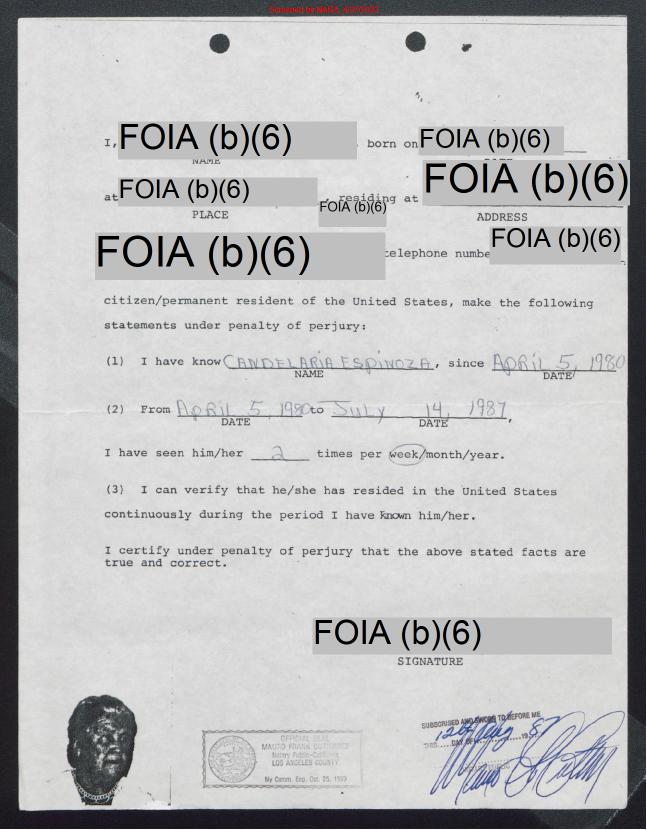 Screened by NARA, 4/24/2023
I, FOIA (b)(6) born on FOIA (b)(6)
NAME
at FOIA (b)(6) FOIA (b)(6) residing at FOIA (b)(6)
PLACE ADDRESS
FOIA (b)(6) telephone numbe FOIA (b)(6)
citizen/permanent resident of the United States, make the following
statements under penalty of perjury:
(1) I have know CANDELARIA ESPINOZA, since APRIL 5, 1980
NAME DATE
(2) From APRIL 5, 1980 to JULY 14, 1987,
DATE DATE
I have seen him/her 2 times per week/month/year.
(3) I can verify that he/she has resided in the United States
continuously during the period I have known him/her.
I certify under penalty of perjury that the above stated facts are
true and correct.
FOIA (b)(6)
SIGNATURE
OFFICIAL SEAL
MAURO FRANK GUTIERREZ
Notary Public-California
LOS ANGELES COUNTY
My Comm. Exp. Oct. 25, 1989
SUBSCRIBED AND SWORN TO BEFORE ME
DAY OF 19 87